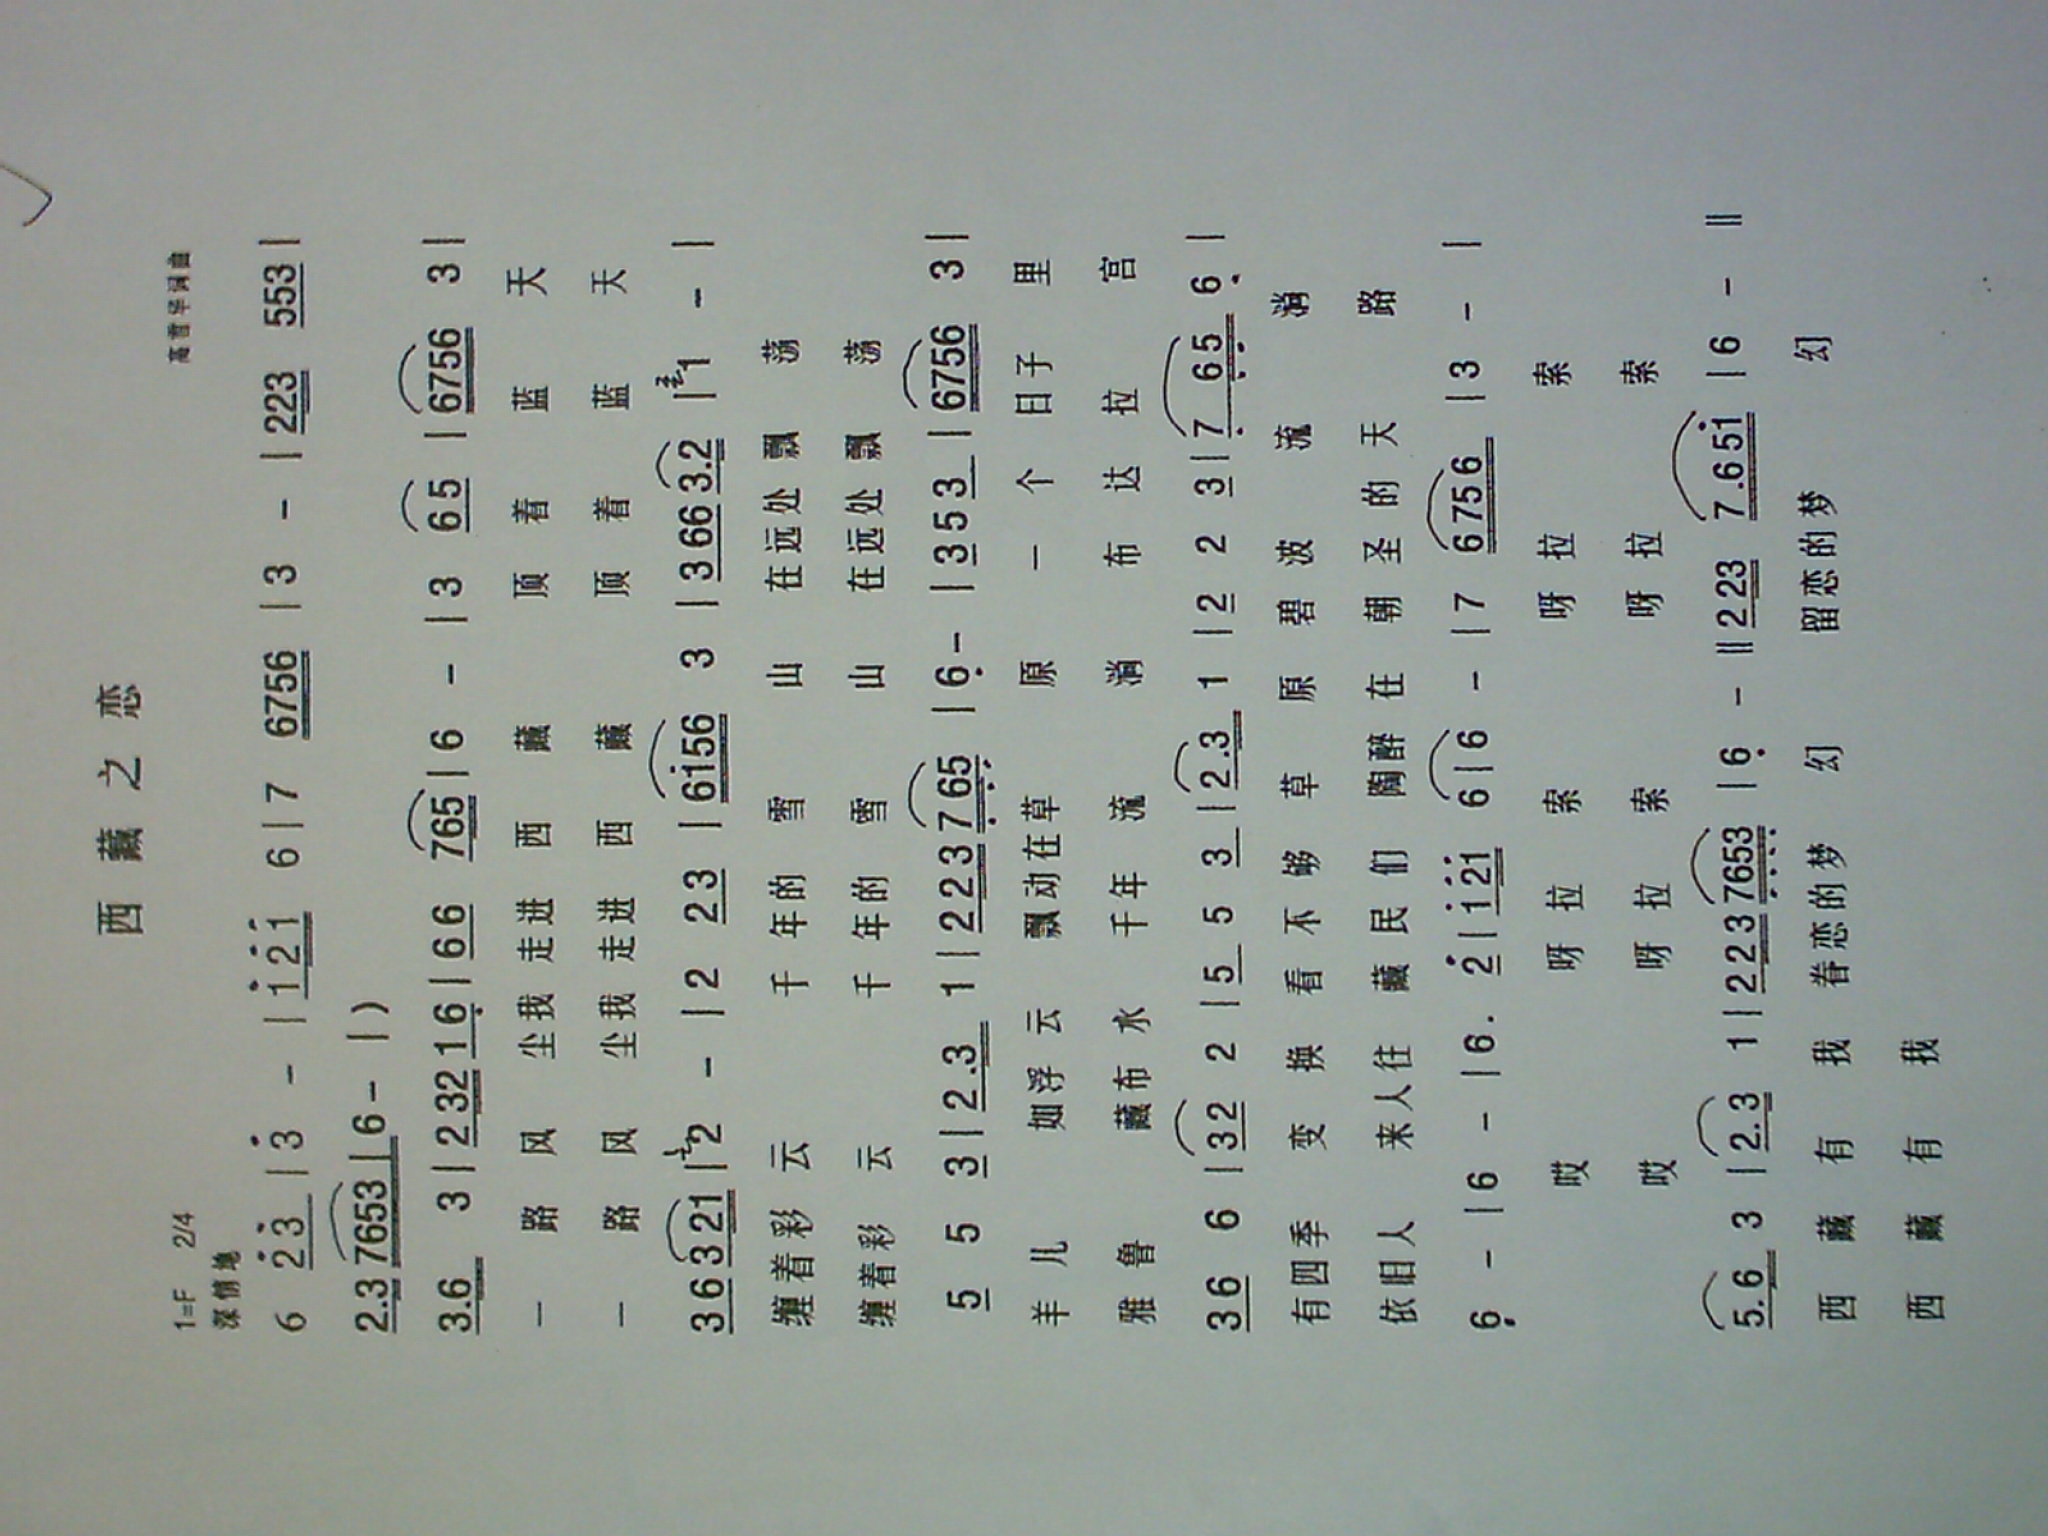 西 藏 之 恋
1=F 2/4 高雪华词曲
深情地
6 2̇3̇ | 3̇ - | 1̇2̇1̇ 6 | 7 6756 | 3 - | 223 553 |
2.3 7653 | 6 - | )
3.6 3 | 2 32 1 6̣ | 6 6 765 | 6 - | 3 6 5 | 6756 3 |
一 路 风 尘 我 走 进 西 藏 顶 着 蓝 天
一 路 风 尘 我 走 进 西 藏 顶 着 蓝 天
3 6 3 2 1 | 2 - | 2 2 3 | 6 1̇ 5 6 3 | 3 6 6 3.2 | 1 - |
缠 着 彩 云 千 年 的 雪 山 在 远 处 飘 荡
缠 着 彩 云 千 年 的 雪 山 在 远 处 飘 荡
5 5 3 | 2.3 1 | 2 2 3 7̣ 6̣ 5̣ | 6̣ - | 3 5 3 | 6756 3 |
羊 儿 如 浮 云 飘 动 在 草 原 一 个 日 子 里
雅 鲁 藏 布 水 千 年 流 淌 布 达 拉 宫
3 6 6 | 3 2 2 | 5 5 3 | 2.3 1 | 2 2 3 | 7̣ 6̣ 5̣ 6̣ |
有 四 季 变 换 看 不 够 草 原 碧 波 流 淌
依 旧 人 来 人 往 藏 民 们 陶 醉 在 朝 圣 的 天 路
6̣ - | 6 - | 6 . 2̇ | 1̇ 1̇2̇1̇ 6 | 6 - | 7 6756 | 3 - |
哎 呀 拉 索 呀 拉 索
哎 呀 拉 索 呀 拉 索
5.6 3 | 2.3 1 | 2 2 3 7̣6̣5̣3̣ | 6̣ - ‖ 2 23 7.6 5 1̇ | 6 - ‖
西 藏 有 我 眷 恋 的 梦 幻 留 恋 的 梦 幻
西 藏 有 我